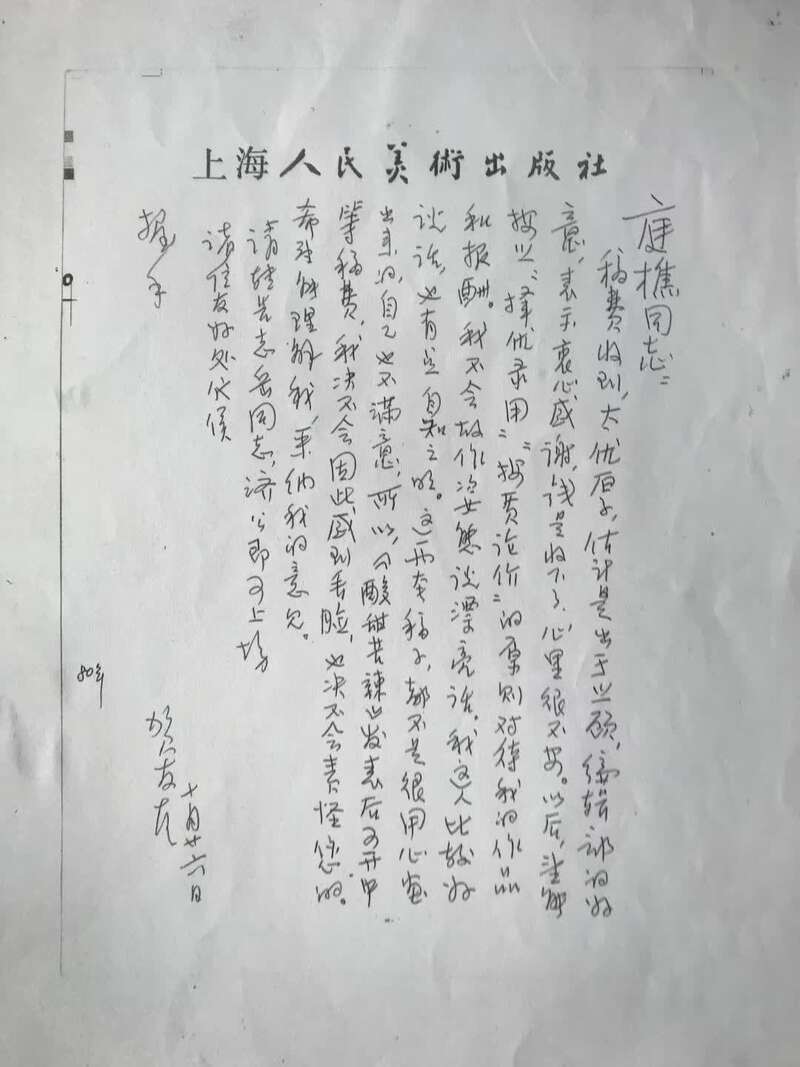 上海人民美術出版社
庭樵同志：
稿费收到，太优厚了，估计是出于照顾，编辑部的好
意，表示衷心感谢，钱是收下了，心里很不安。以后，望能
按照“择优录用”“按质论价”的原则对待我的作品
和报酬。我不会故作姿态谈漂亮话，我这人比较好
谈话，也有点自知之明。这两本稿子，都不是很用心画
出来的，自己也不满意，所以，《酸甜苦辣》发表后可开中
等稿费，我决不会因此感到丢脸，也决不会责怪您的。
希望能理解我，采纳我的意见。
请转告志岳同志，济公即可上场
诸位友好处代候
握手
贺友直
十月廿六日
80年